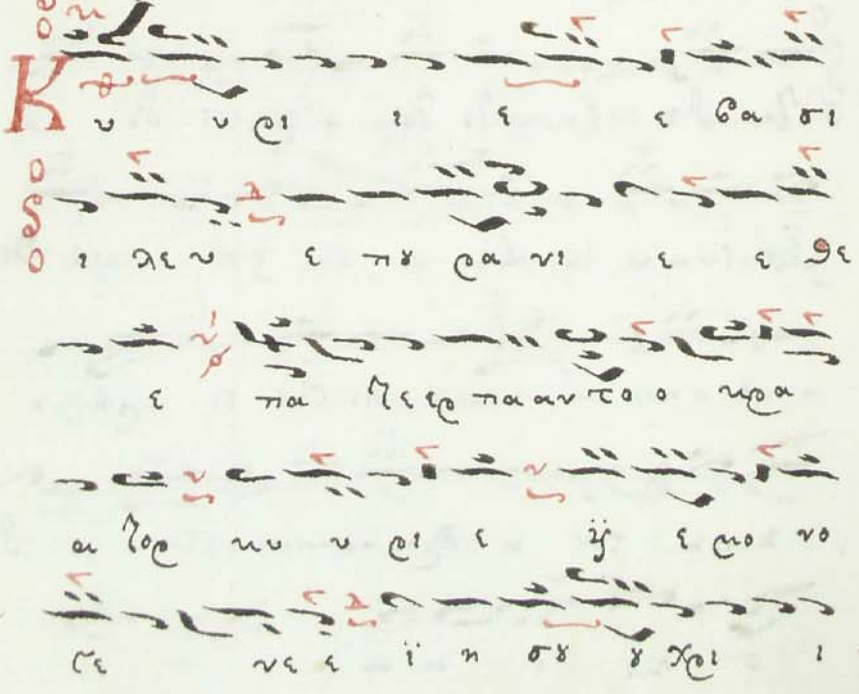 Κ υ υρι ι ε ε βα σι
ι λε υ ε πȣ ρα νι ε ε Θε
ε πα τε ερ πα αν το ο κρα
α τορ κυ υ ρι ε ϋϊ ε μο νο
γε νε ε ϊ η σȣ ȣ χρι ι